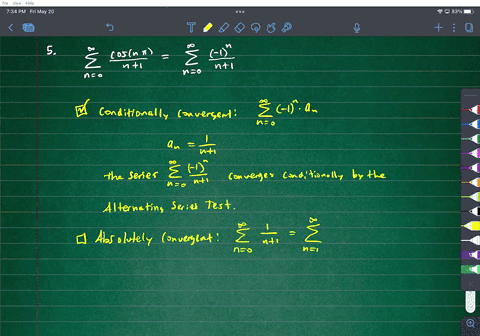 View Edit
7:34 PM Fri May 20
93%
5. \sum_{n=0}^{∞} \frac{cos(nπ)}{n+1} = \sum_{n=0}^{∞} \frac{(-1)^n}{n+1}
☑ Conditionally Convergent: \sum_{n=0}^{∞} (-1)^n · a_n
a_n = \frac{1}{n+1}
the series \sum_{n=0}^{∞} \frac{(-1)^n}{n+1} converges conditionally by the
Alternating Series Test.
☐ Absolutely Convergent: \sum_{n=0}^{∞} \frac{1}{n+1} = \sum_{n=1}^{∞}